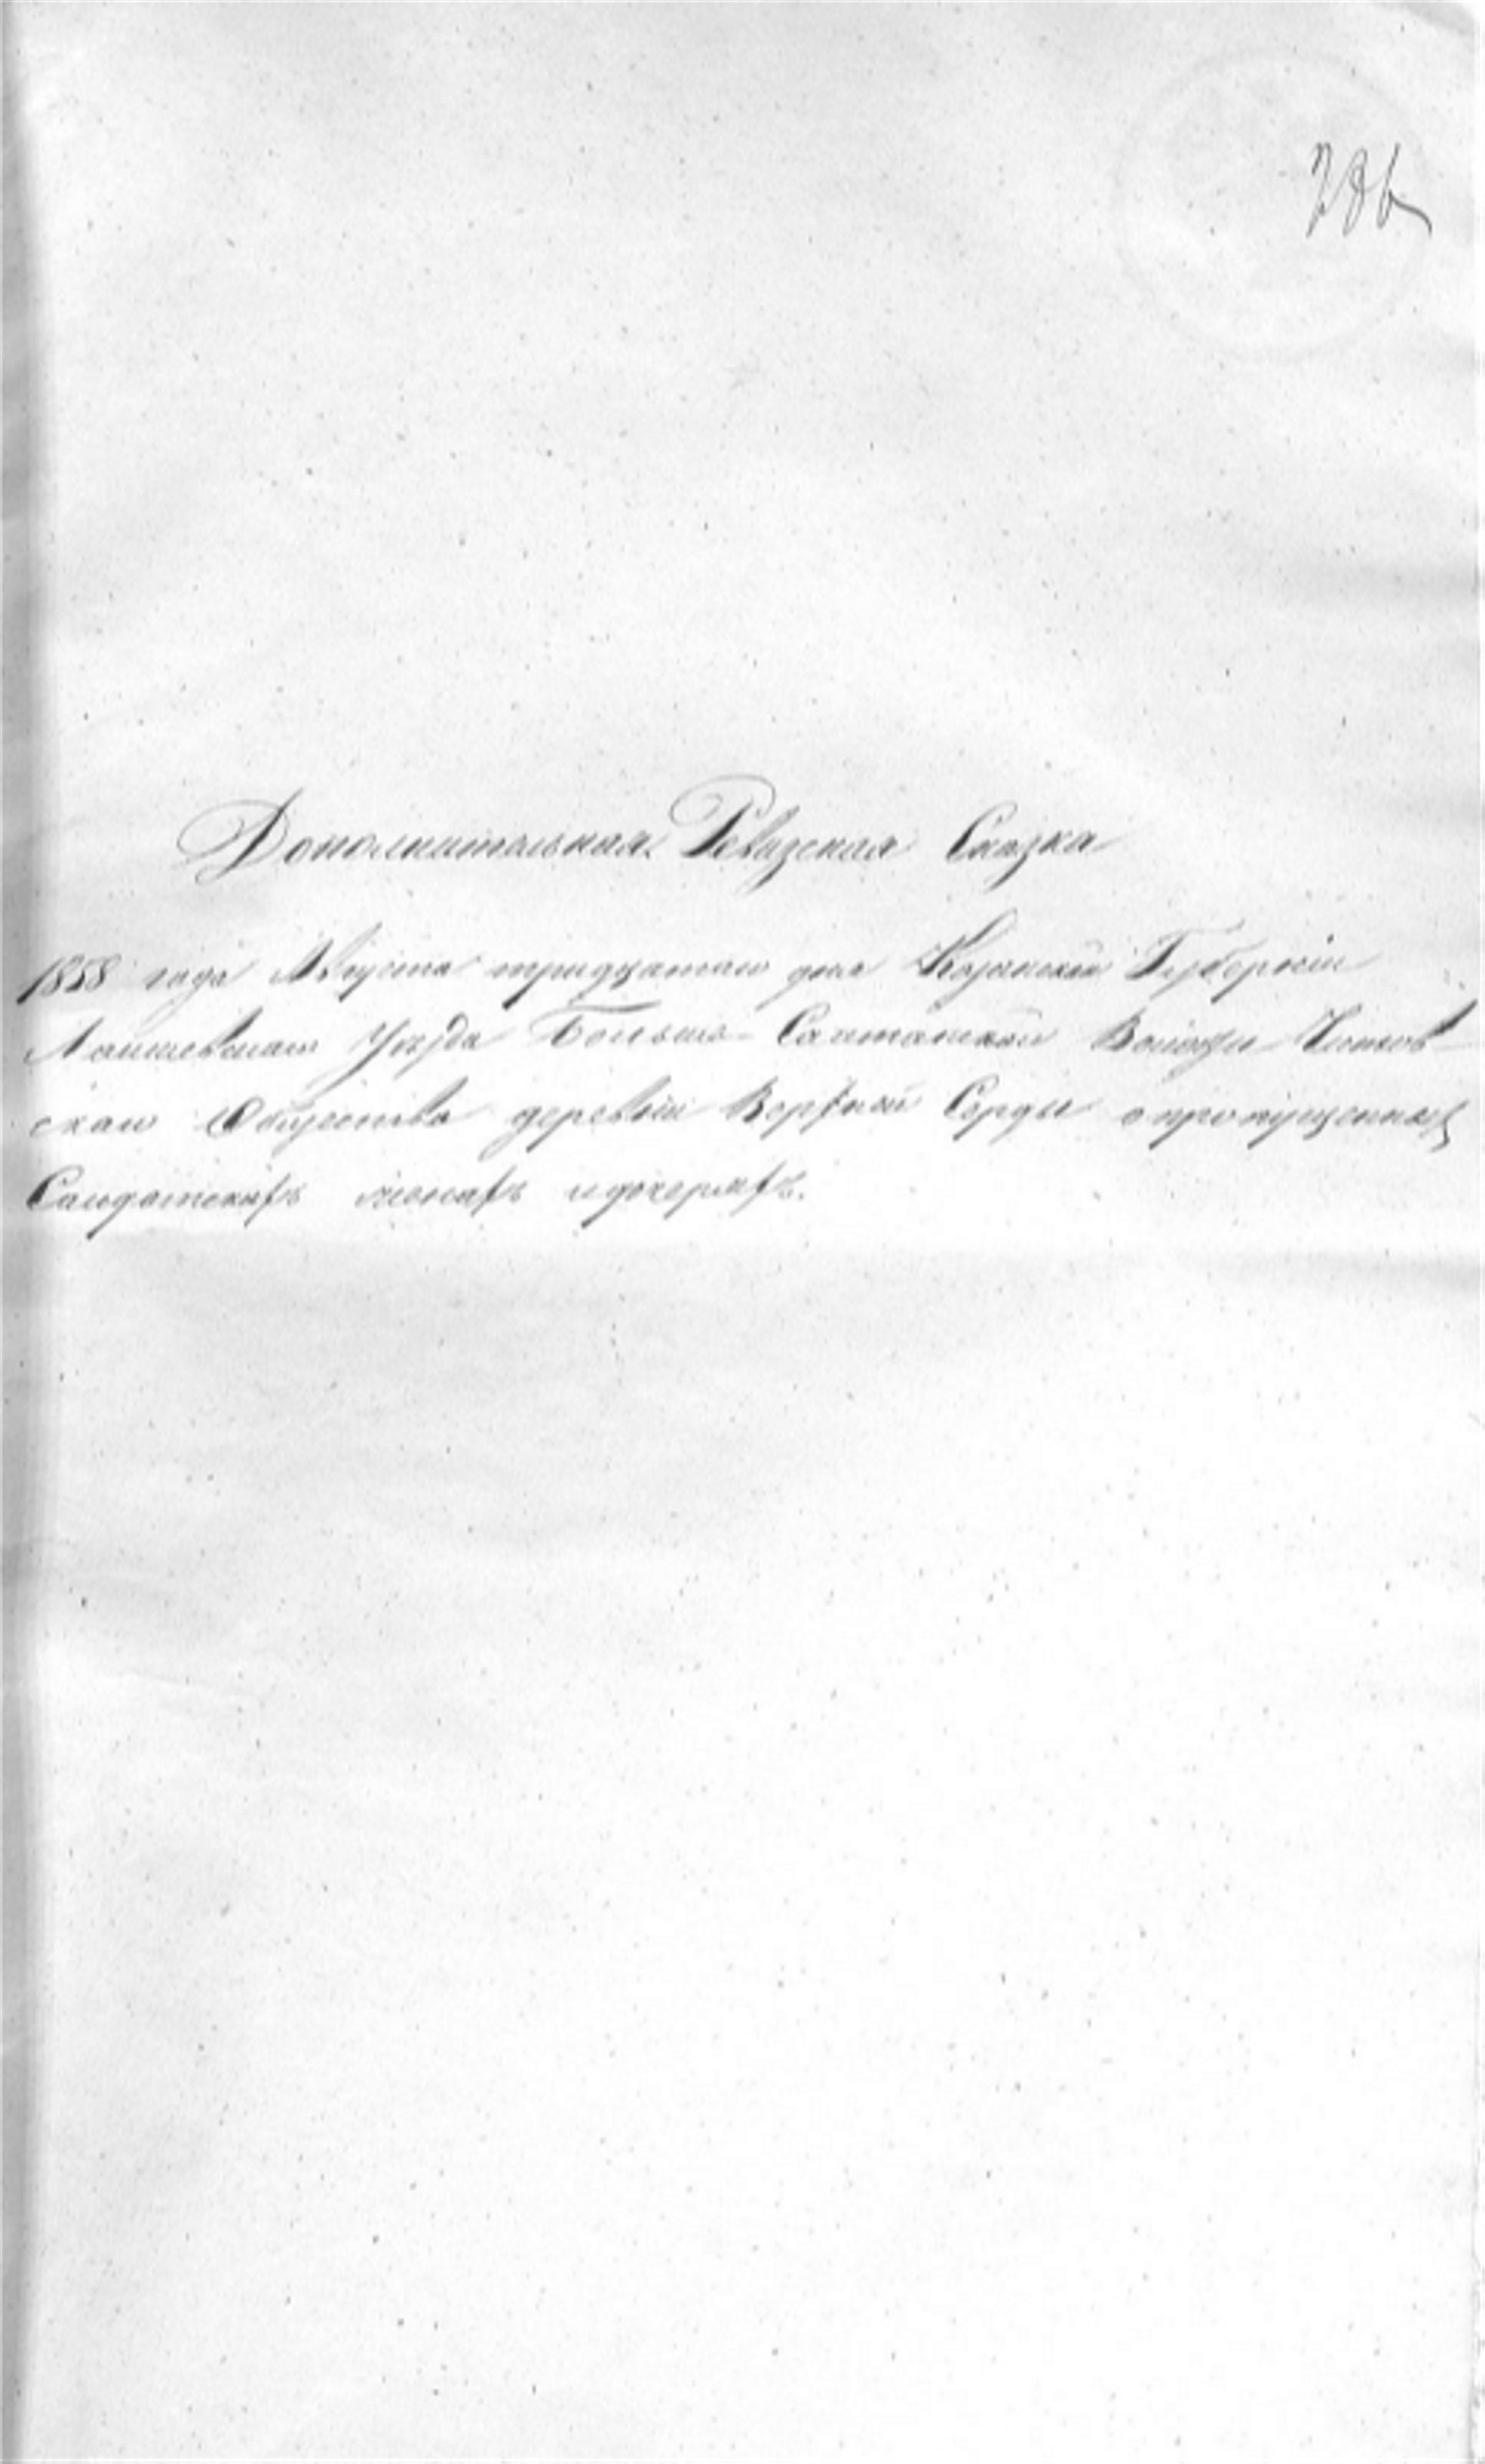 286
Дополнительная Ревизская Сказка
1858 года Августа тридцатаго дня Казанской Губерніи
Лаишевскаго Уѣзда Больше- Волости
скаго Общества деревни Верхней Серды о пропущенныхъ
Салдатскихъ женахъ и дочеряхъ.